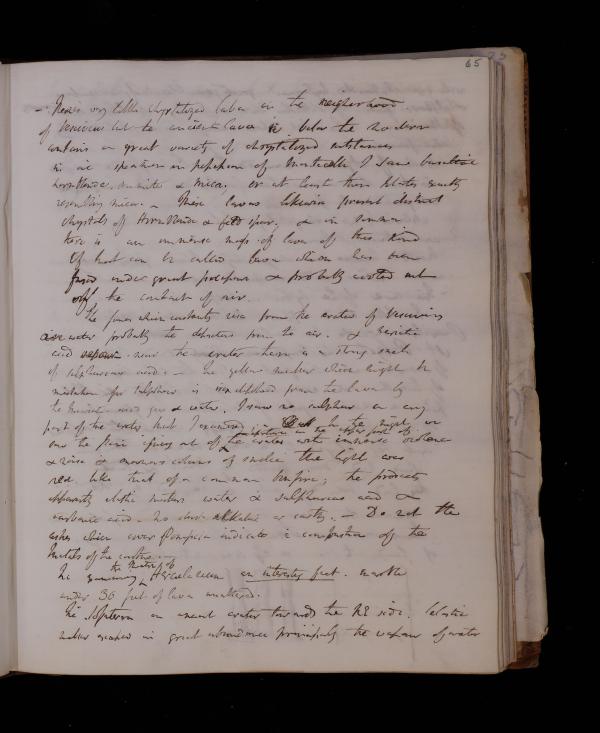 65
- There is very little chrystalized lava in the neighborhood
of Vesuvius but the ancient lava below the
contains a great variety of chrystalized substances
in one specimen in possession of Monticelli I saw
hornblende, & mica. or at least thin plates exactly
resembling mica. - These lavas likewise present distinct
chrystals of Hornblende & feldspar. & in Somma
there is an immense mass of lava of this kind
if that can be called lava which has been
fused under great pressure & probably cooled out
off the contact of air.
The fumes which constantly rise from the crater of Vesuvius
are water probably the from the air. & muriatic
acid vapour. near the crater there is a strong smell
of sulphureous acid. - The yellow matter which might be
mistaken for sulphur is from the lava by
the muriatic acid gas & water. I saw no sulphur in any
part of the crater that I examined. in the night, on
in the upper part of
one the fire of the crater with immense violence
& noise & enormous columns of smoke the light was
red like that of a common bonfire; the products
apparently elastic matters water & sulphureous acid &
carbonic acid. no alkaline or earthy. - Do not the
ashes which cover Pompeia indicate a combustion of the
metals of the earths. -
the theatre of
The Herculaneum an interesting fact. marble
under 36 feet of lava unaltered.
The Solfaterra an ancient crater towards the NE side. Elastic
matter in great abundance principally the vapour of water